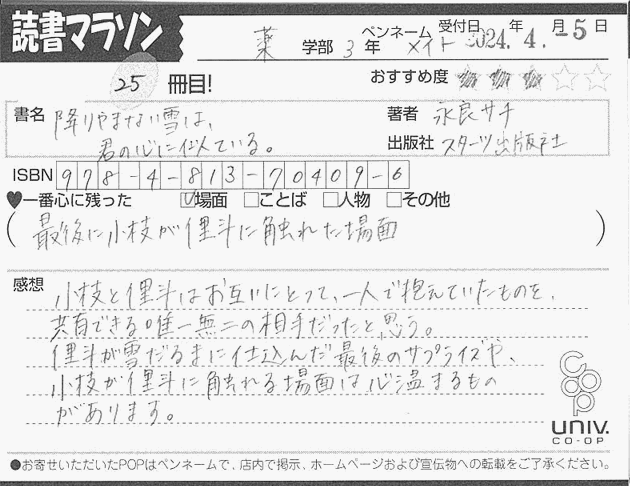 読書マラソン
薬 学部 3 年 ペンネーム メイト 受付日 2024年 4月 -5日
25 冊目!
おすすめ度 ★★★☆☆
書名 降りやまない雪は、
君の心に似ている。
著者 永良サチ
出版社 スターツ出版社
ISBN 978-4-813-70409-6
♥一番心に残った ☑場面 □ことば □人物 □その他
(最後に小枝が俚斗に触れた場面)
感想 小枝と俚斗はお互いにとって、一人で抱えていたものを、
共有できる唯一無二の相手だったと思う。
俚斗が雪だるまに仕込んだ最後のサプライズや、
小枝が俚斗に触れる場面は心温まるもの
があります。
coop
univ.
CO-OP
●お寄せいただいたPOPはペンネームで、店内で掲示、ホームページおよび宣伝物への転載をご了承ください。